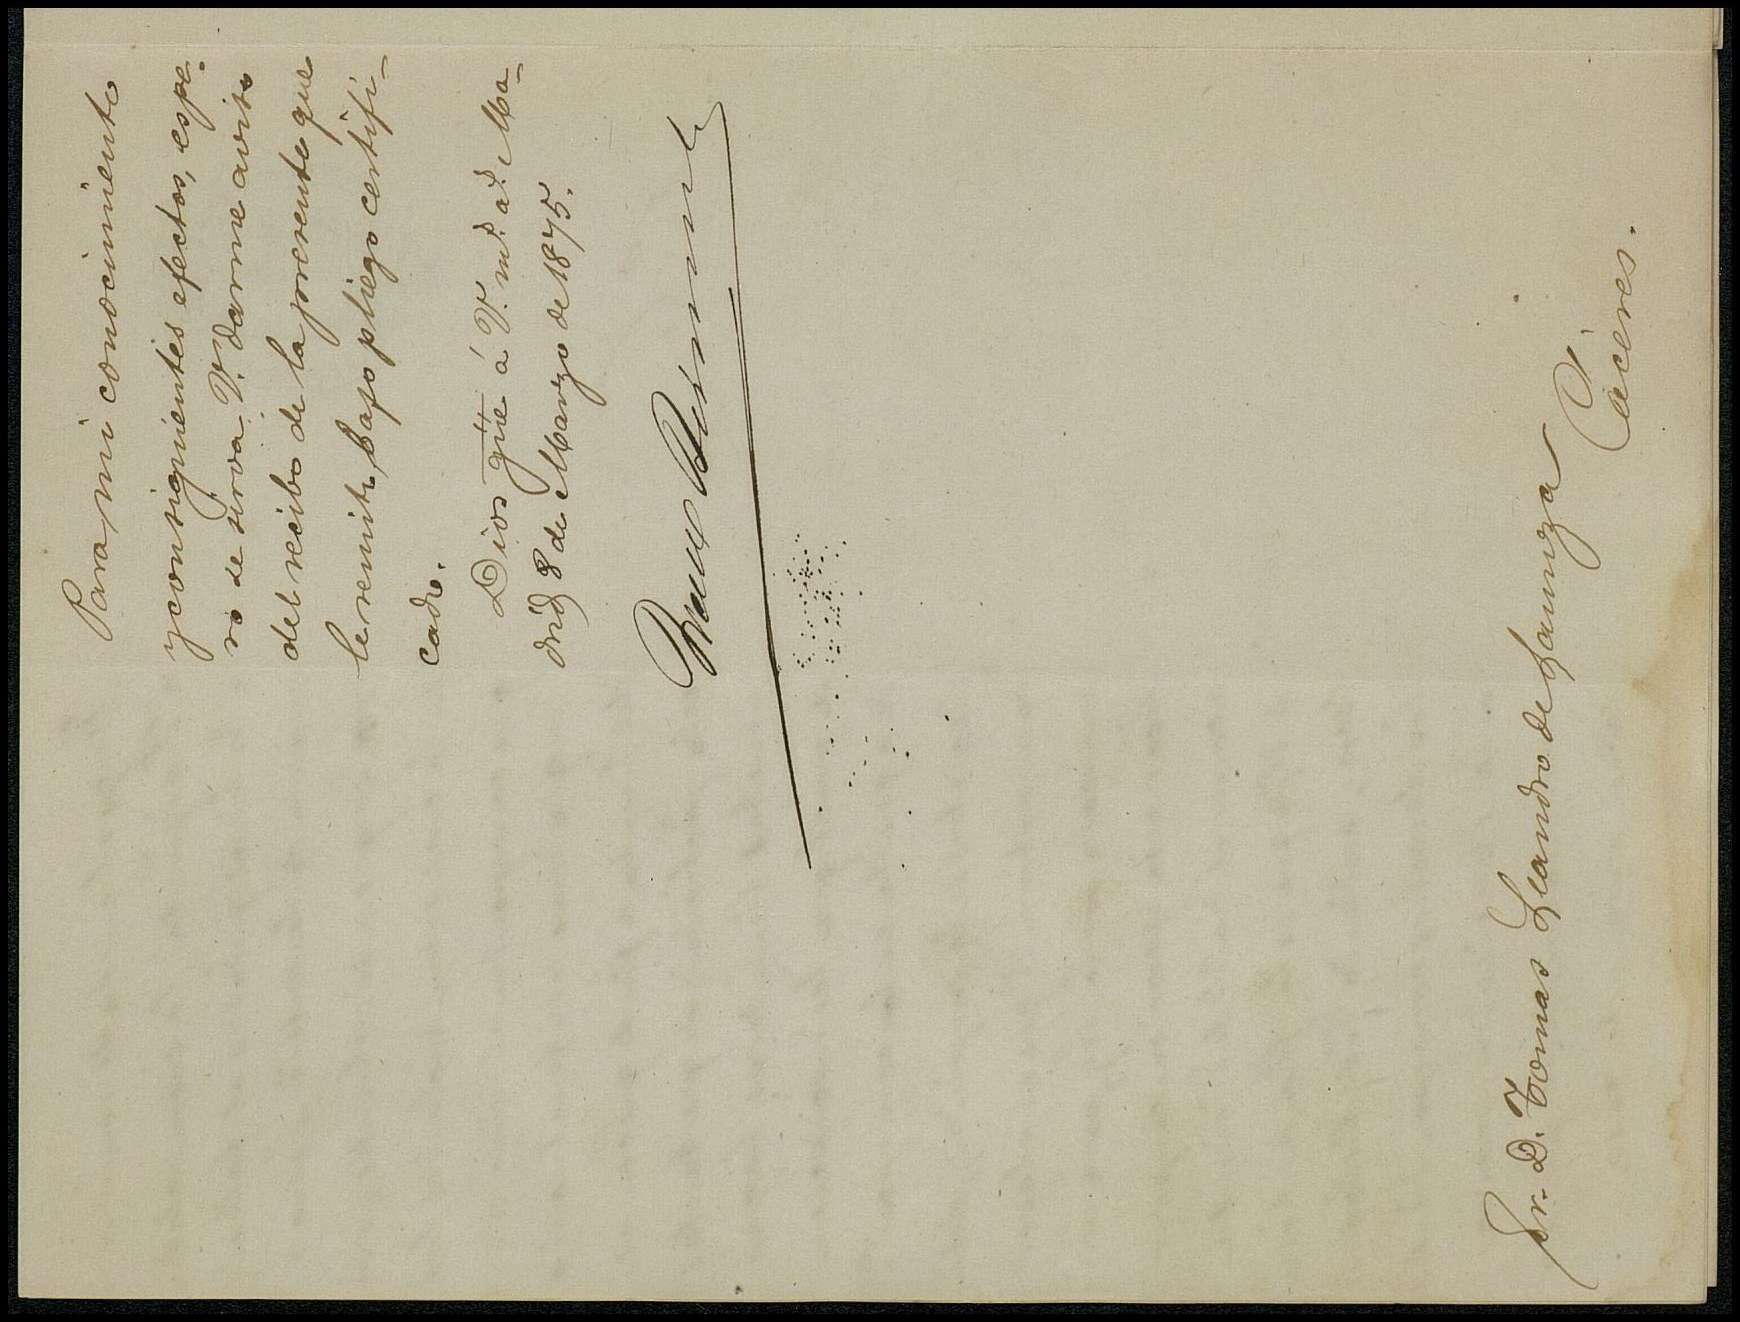 Para mi conocimiento
y consiguientes efectos, espe-
ro se sirva V. darme aviso
del recibo de la presente que
le remito bajo pliego certifi-
cado.
Dios gue á V. ms. as. Ma-
drid 8 de Marzo de 1875.
Sr. D. Tomas Leandro de
Cáceres.